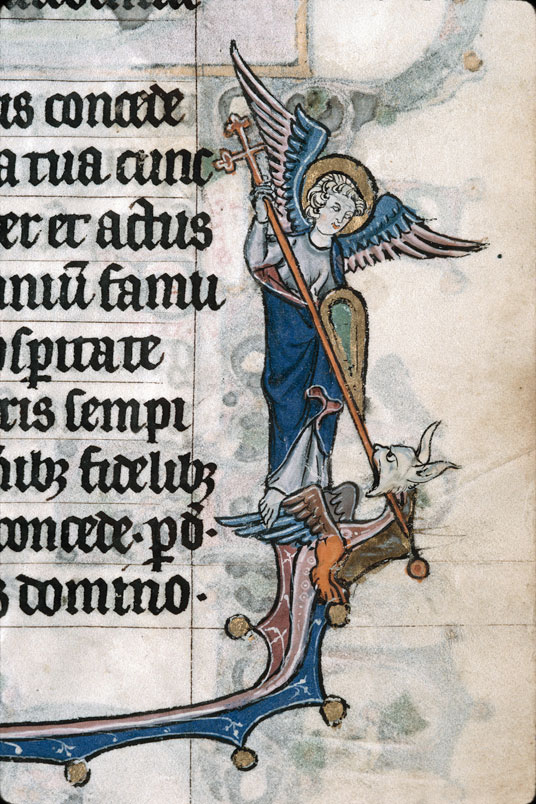 us concede
a tua cunc
er et actus
niū famu
sꝑitate
ris sempi
ibꝫ fidelibꝫ
concede. ꝑ dn̄.
domino.